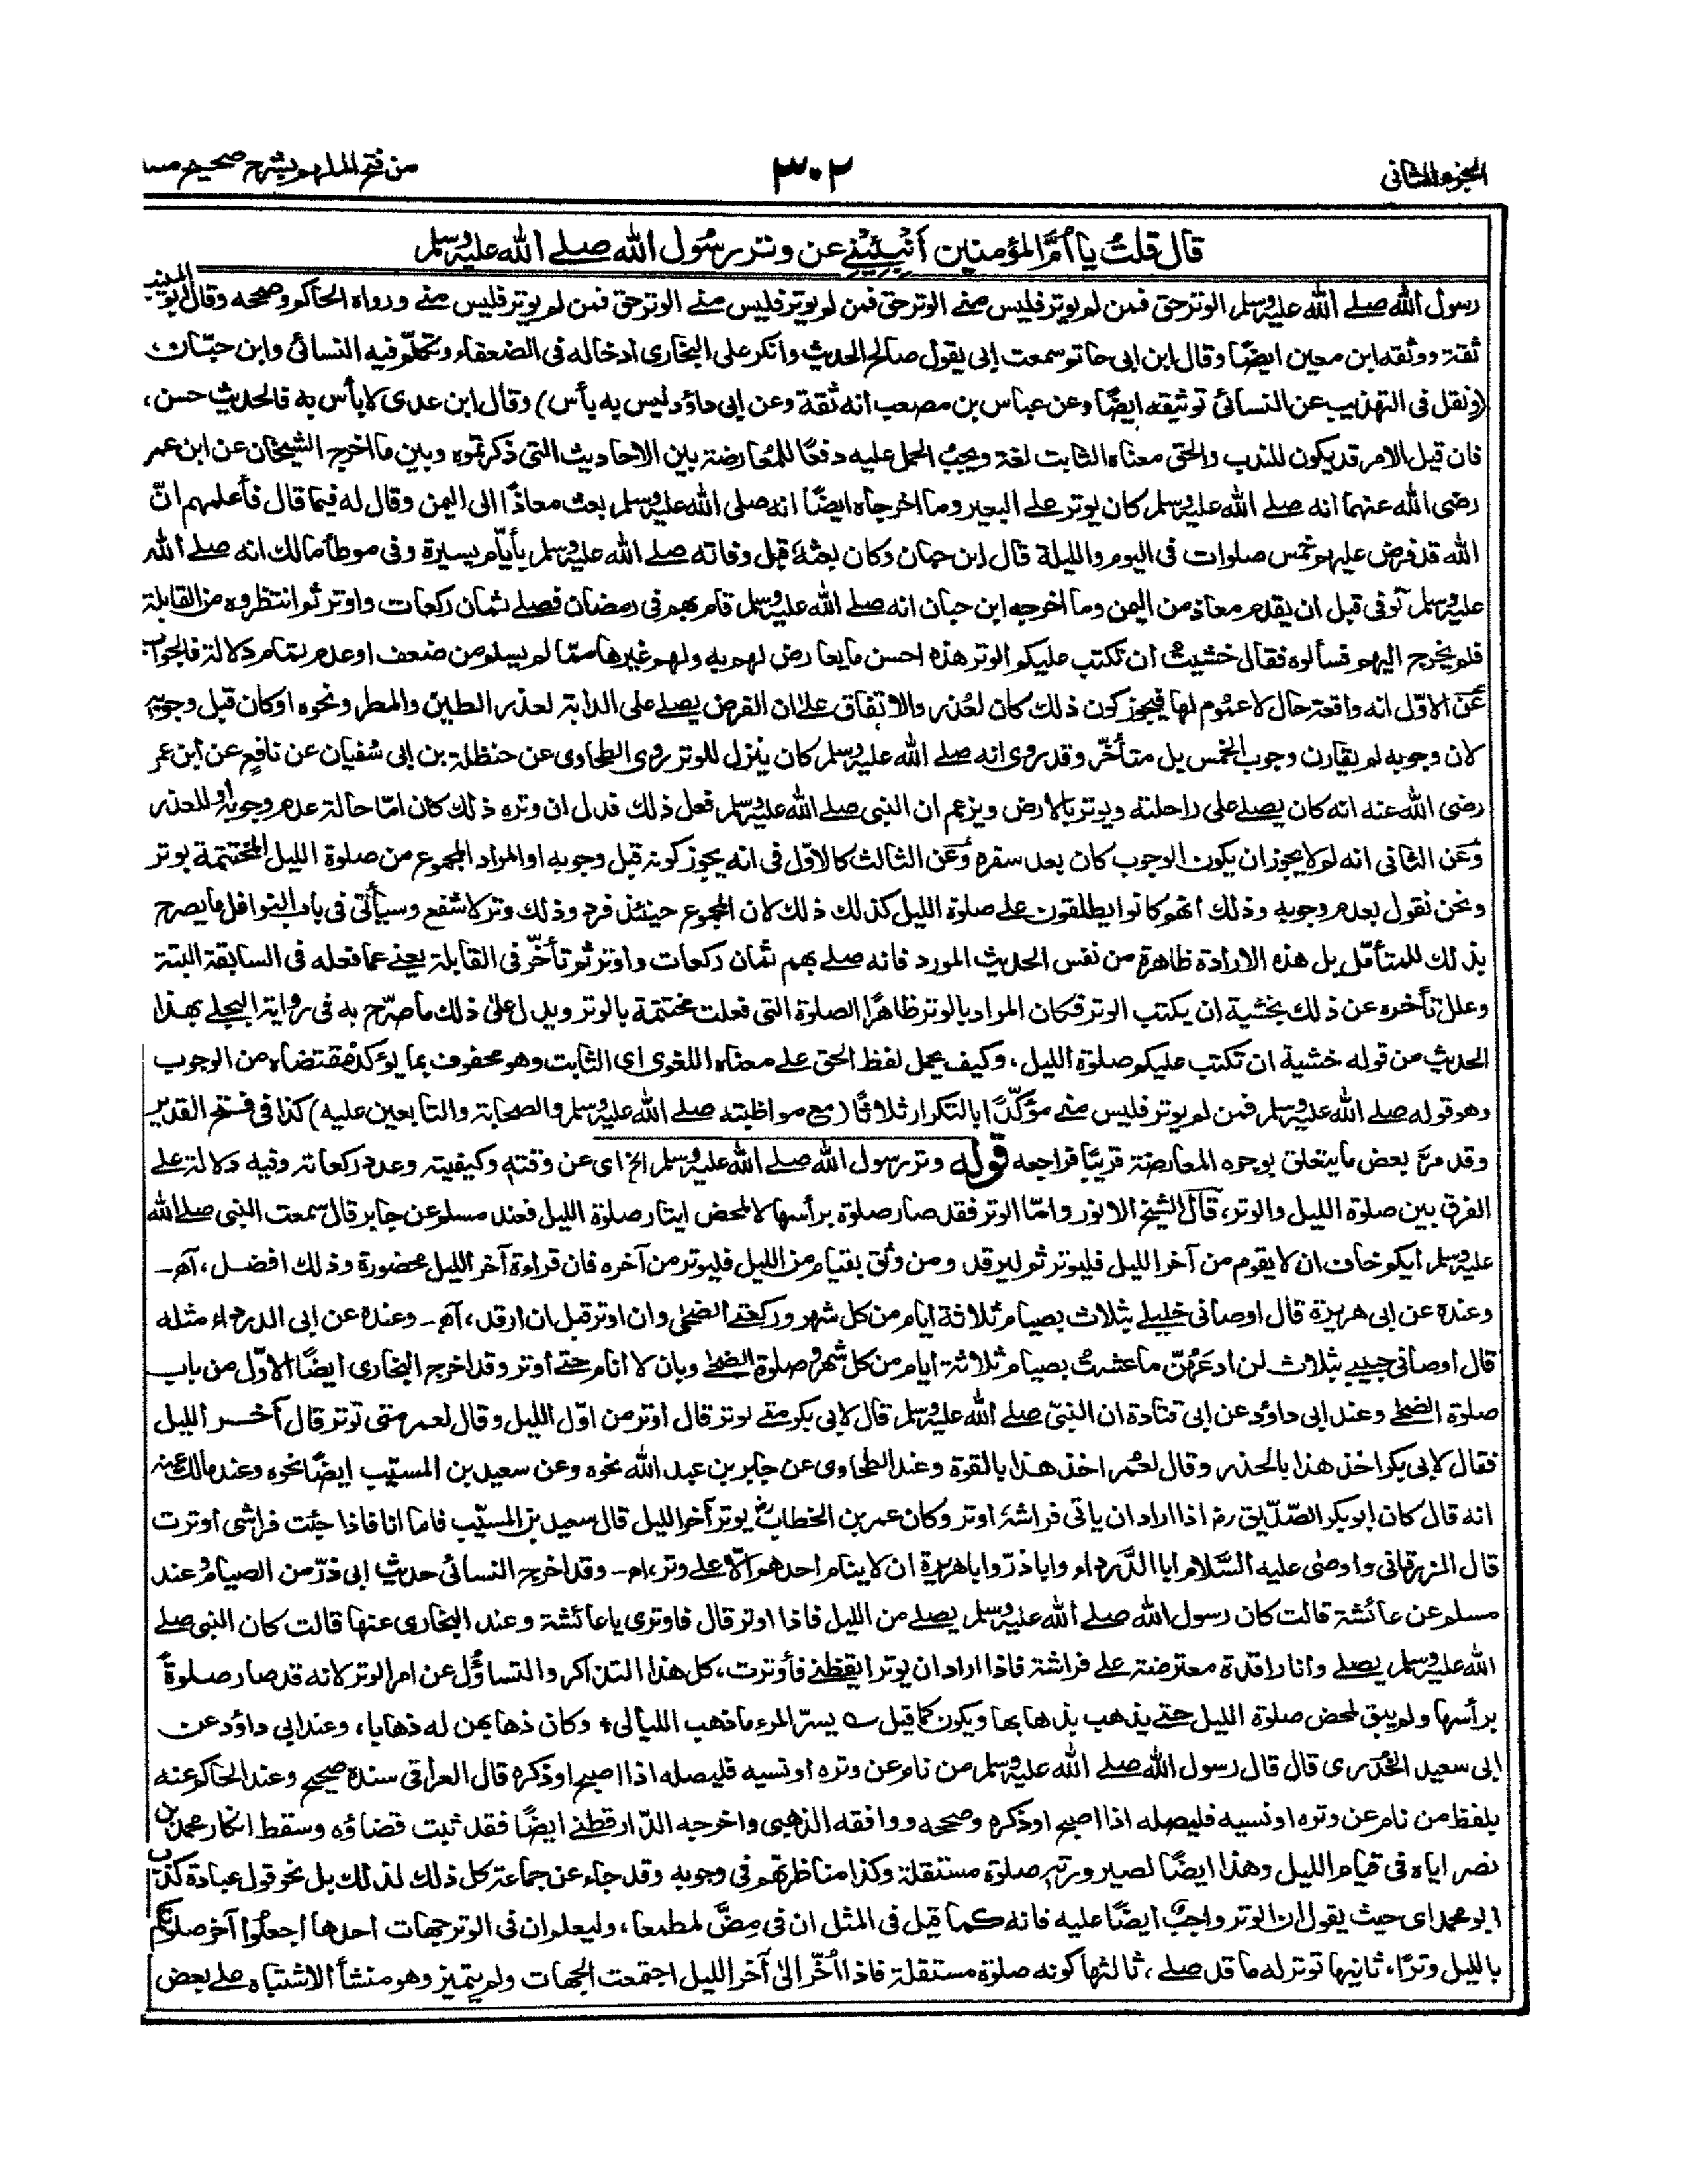 الجزء الثانى
٣٠٢
من فتح الملهم بشرح صحيح مسلم
قال قلتُ يا أمَّ المؤمنين أنبئينى عن وتر رسول الله صلى الله عليه وسلم
رسول الله صلے الله عليه وسلم الوتر حق فمن لم يوتر فليس منے الوتر حق فمن لم يوتر فليس منے الوتر حق فمن لم يوتر فليس منے ورواه الحاكم وصححه وقال ابو المنيب
ثقة ووثقه ابن معين ايضًا وقال ابن ابى حاتم سمعت ابى يقول صالح الحديث وانكر على البخارى ادخاله فى الضعفاء وتكلّم فيه النسائى وابن حبّان
(ونقل فى التهذيب عن النسائى توثيقه ايضًا وعن عباس بن مصعب انه ثقة وعن ابى داؤد ليس به بأس) وقال ابن عدى لا بأس به فالحديث حسن،
فان قيل الامر قد يكون للندب والحق معناه الثابت لغة ويجبُ الحمل عليه دفعًا للمُعارضة بين الاحاديث التى ذكرتموه وبين ما اخرج الشيخان عن ابن عمر
رضى الله عنهما انه صلے الله عليه وسلم كان يوتر على البعير وما اخرجاه ايضًا انه صلى الله عليه وسلم بعث معاذًا الى اليمن وقال له فيما قال فأعلمهم انّ
الله قد فرض عليهم خمس صلوات فى اليوم والليلة قال ابن حبان وكان بعثهٗ قبل وفاته صلے الله عليه وسلم بأيّام يسيرة وفى موطأ مالك انه صلے الله
عليه وسلم توفى قبل ان يقدم معاذ من اليمن وما اخرجه ابن حبان انه صلے الله عليه وسلم قام بهم فى رمضان فصلے ثمان ركعات واوتر ثم انتظروه من القابلة
فلم يخرج اليهم فسألوه فقال خشيتُ ان تكتب عليكم الوتر هذه احسن ما يعارض لهم به ولهم غيرها ممّا لم يسلم من ضعف او عدم تمام دلالة فالجواب
عن الاوّل انه واقعة حال لا عموم لها فيجوز كون ذلك كان لعُذر والاتفاق على ان الفرض يصلے على الدابة لعذر الطين والمطر ونحوه او كان قبل وجوبه
لان وجوبه لم يقارن وجوب الخمس بل متأخّر وقد روى انه صلے الله عليه وسلم كان ينزل للوتر روى الطحاوى عن حنظلة بن ابى سُفيان عن نافع عن ابن عمر
رضى الله عنه انه كان يصلے على راحلته ويوتر بالارض ويزعم ان النبى صلے الله عليه وسلم فعل ذلك فدل ان وتره ذلك كان امّا حالة عدم وجوبه او للعذر
وعن الثانى انه لم لا يجوز ان يكون الوجوب كان بعد سفره وعن الثالث كالاوّل فى انه يجوز كونه قبل وجوبه او المراد المجموع من صلوة الليل المختتمة بوتر
ونحن نقول بعدم وجوبه وذلك انهم كانوا يطلقون على صلوة الليل كذلك ذلك لان المجموع حينئذ فرد وذلك وتر لا شفع وسيأتى فى باب النوافل ما يصرح
بذلك للمتأمّل بل هذه الارادة ظاهرة من نفس الحديث المورد فانه صلے بهم ثمان ركعات واوتر ثم تأخّر فى القابلة يعنے عما فعله فى السابقة البتة
وعلل تأخره عن ذلك بخشية ان يكتب الوتر فكان المراد بالوتر ظاهرًا الصلوة التى فعلت مختتمة بالوتر ويدل على ذلك ما صرّح به فى رواية البجلے بهذا
الحديث من قوله خشية ان تكتب عليكم صلوة الليل، وكيف يحمل لفظ الحق على معناه اللغوى اى الثابت وهو محفوف بما يؤكد مقتضاه من الوجوب
وهو قوله صلے الله عليه وسلم فمن لم يوتر فليس منے مؤكّدًا بالتكرار ثلاثًا (مع مواظبته صلے الله عليه وسلم والصحابة والتابعين عليه) كذا فى فتح القدير
وقد مرّ بعض ما يتعلق بوجوه المعارضة قريبًا فراجعه قوله وتر رسول الله صلے الله عليه وسلم الخ اى عن وقته وكيفيته وعدد ركعاته وفيه دلالة على
الفرق بين صلوة الليل والوتر، قال الشيخ الانور وامّا الوتر فقد صار صلوة برأسها لا لمحض ايتار صلوة الليل فعند مسلم عن جابر قال سمعت النبى صلے الله
عليه وسلم ايكم خاف ان لا يقوم من آخر الليل فليوتر ثم ليرقد ومن وثق بقيام من الليل فليوتر من آخره فان قراءة آخر الليل محضورة وذلك افضل، آه۔
وعنده عن ابى هريرة قال اوصانى خليلے بثلاث بصيام ثلاثة ايام من كل شهر وركعتے الضحٰى وان اوتر قبل ان ارقد، آه۔ وعنده عن ابى الدرداء مثله
قال اوصانى حبيبے بثلاث لن ادعَهُنّ ما عشتُ بصيام ثلاثة ايام من كل شهر وصلوة الضحٰے وبان لا انام حتے اوتر وقد اخرج البخارى ايضًا الاوّل من باب
صلوة الضحٰے وعند ابى داؤد عن ابى قتادة ان النبىّ صلے الله عليه وسلم قال لابى بكر متے توتر قال أوتر من اوّل الليل وقال لعمر متى توتر قال آخر الليل
فقال لابى بكر اخذ هذا بالحذر وقال لعُمر اخذ هذا بالقوة وعند الطحاوى عن جابر بن عبد الله نحوه وعن سعيد بن المسيّب ايضًا نحوه وعند مالك عنه
انه قال كان ابو بكر الصّدّيق رض اذا اراد ان ياتى فراشهٗ اوتر وكان عمر بن الخطاب رض يوتر آخر الليل قال سعيد بن المسيّب فاما انا فاذا جئت فراشى أوترت
قال الزرقانى واوصٰى عليه السّلام ابا الدّرداء وابا ذرّ وابا هريرة ان لا ينام احدهم الّا على وتر، اه۔ وقد اخرج النسائى حديث ابى ذرّ من الصيام وعند
مسلم عن عائشة قالت كان رسول الله صلے الله عليه وسلم يصلے من الليل فاذا اوتر قال فاوترى يا عائشة وعند البخارى عنها قالت كان النبى صلے
الله عليه وسلم يصلے وانا راقدة معترضة على فراشة فاذا اراد ان يوتر ايقظنے فأوترت، كل هذا التذاكر والتساؤُل عن امر الوتر لانه قد صار صلوةً
برأسها ولم يبق لمحض صلوة الليل حتے يذهب بذهابها ويكون كما قيل ؎ يسرّ المرء ما ذهب الليالى ٭ وكان ذهابهن له ذهابا، وعند ابى داؤد عن
ابى سعيد الخُدرى قال قال رسول الله صلے الله عليه وسلم من نام عن وتره او نسيه فليصله اذا اصبح او ذكره قال العراقى سنده صحيح وعند الحاكم عنه
بلفظ من نام عن وتره او نسيه فليصله اذا اصبح او ذكره وصححه ووافقه الذهبى واخرجه الدّارقطنے ايضًا فقد ثبت قضاؤه وسقط انكار محمد بن
نصر اياه فى قيام الليل وهذا ايضًا لصيرورته صلوة مستقلة وكذا مناظرتهم فى وجوبه وقد جاء عن جماعة كل ذلك لذلك بل نحو قول عبادة كذب
ابو محمد اى حيث يقول ان الوتر واجبٌ ايضًا عليه فانه كما قيل فى المثل ان فى مِضَّ لمطمعا، وليعلم ان فى الوتر جهات احدها اجعلُوا آخر صلوتكم
بالليل وترًا، ثانيها توتر له ما قد صلے، ثالثها كونه صلوة مستقلة فاذا اُخّر الىٰ آخر الليل اجتمعت الجهات ولم يتميز وهو منشأ الاشتباه على بعض